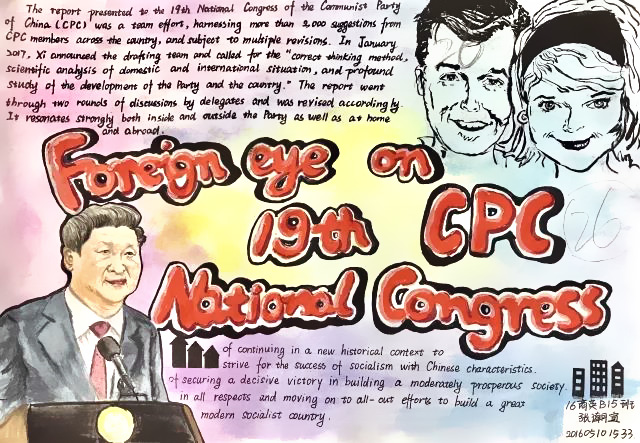 The report presented to the 19th National Congress of the Communist Party
of China (CPC) was a team effort, harnessing more than 2,000 suggestions from
CPC members across the country, and subject to multiple revisions. In January
2017, Xi announced the drafting team and called for the "correct thinking method,
scientific analysis of domestic and international situation, and profound
study of the development of the Party and the country." The report went
through two rounds of discussions by delegates and was revised accordingly.
It resonates strongly both inside and outside the Party as well as at home
and abroad.
Foreign eye on
19th CPC
National Congress
26
of continuing in a new historical context to
strive for the success of socialism with Chinese characteristics.
of securing a decisive victory in building a moderately prosperous society.
in all respects and moving on to all-out efforts to build a great
modern socialist country.
16商英B15班
201605101533